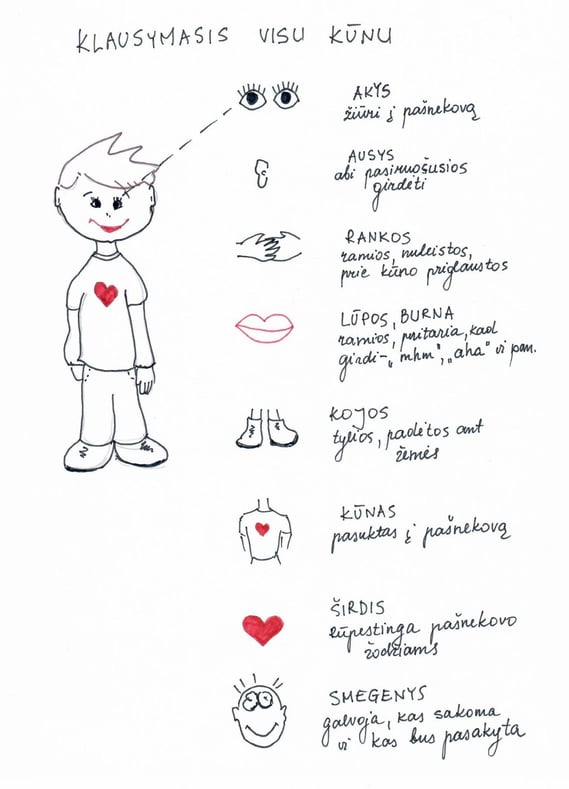 KLAUSYMASIS VISU KŪNU
AKYS
žiūri į pašnekovą
AUSYS
abi pasiruošusios
girdėti
RANKOS
ramios, nuleistos,
prie kūno priglaustos
LŪPOS, BURNA
ramios, pritaria, kad
girdi-„mhm", „aha" ir pan.
KOJOS
tylios, padėtos ant
žemės
KŪNAS
pasuktas į pašnekovą
ŠIRDIS
rūpestinga pašnekovo
žodžiams
SMEGENYS
galvoja, kas sakoma
ir kas bus pasakyta